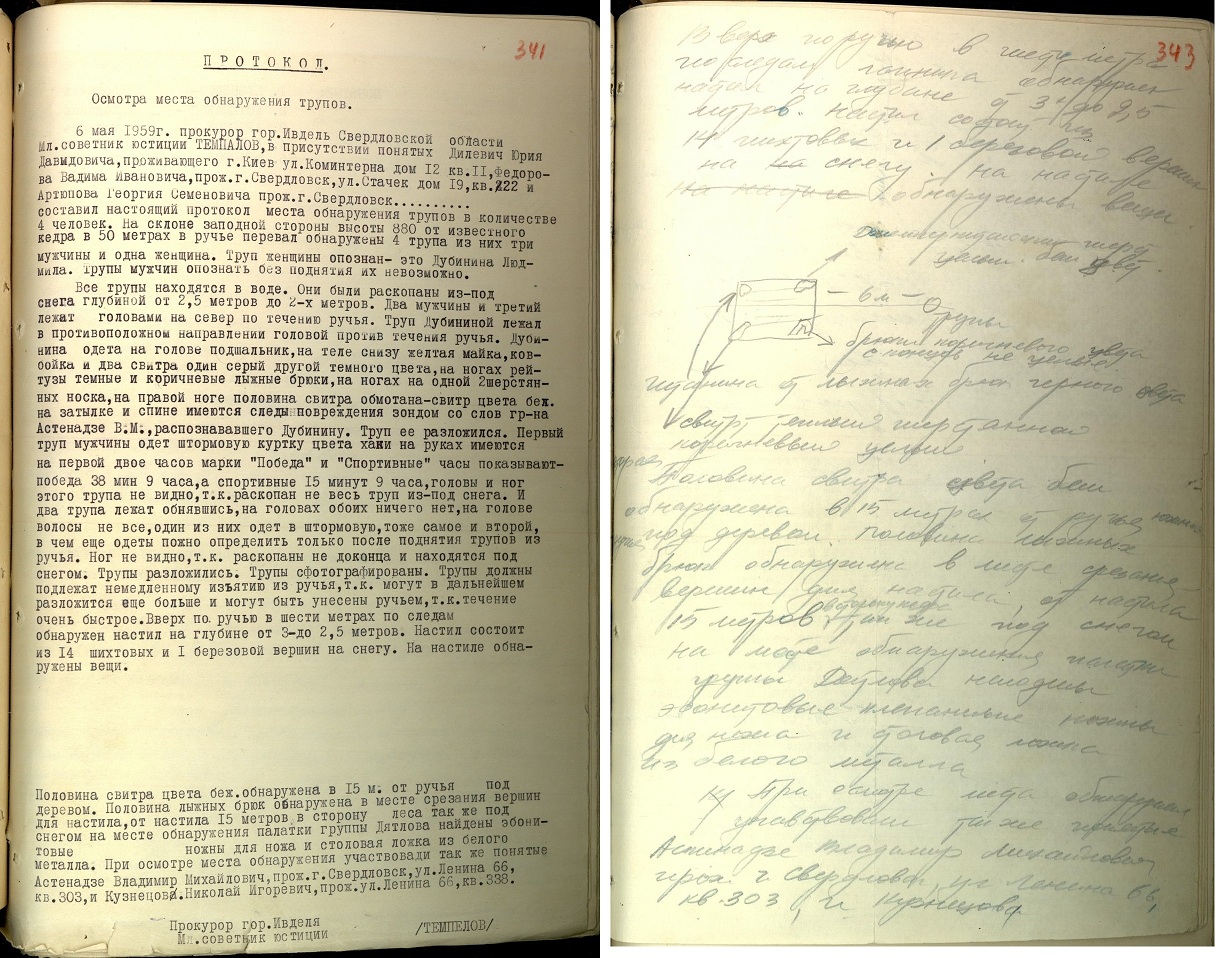 341
ПРОТОКОЛ.
Осмотра места обнаружения трупов.
6 мая 1959г. прокурор гор.Ивдель Свердловской области
Мл.советник юстиции ТЕМПАЛОВ,в присутствии понятых Дилевич Юрия
Давыдовича,проживающего г.Киев ул.Коминтерна дом 12 кв.II,Федоро-
ва Вадима Ивановича,прож.г.Свердловск,ул.Стачек дом I9,кв.222 и
Артюпова Георгия Семеновича прож.г.Свердловск..........
составил настоящий протокол места обнаружения трупов в количестве
4 человек. На склоне заподной стороны высоты 880 от известного
кедра в 50 метрах в ручье перевал обнаружены 4 трупа из них три
мужчины и одна женщина. Труп женщины опознан- это Дубинина Люд-
мила. Трупы мужчин опознать без поднятия их невозможно.
Все трупы находятся в воде. Они были раскопаны из-под
снега глубиной от 2,5 метров до 2-х метров. Два мужчины и третий
лежат головами на север по течению ручья. Труп Дубининой лежал
в противоположном направлении головой против течения ручья. Дуби-
нина одета на голове подшальник,на теле снизу желтая майка,ков-
бойка и два свитра один серый другой темного цвета,на ногах рей-
тузы темные и коричневые лыжные брюки,на ногах на одной 2шерстян-
ных носка,на правой ноге половина свитра обмотана-свитр цвета беж.
на затылке и спине имеются следы повреждения зондом со слов гр-на
Астенадзе В.М.,распознававшего Дубинину. Труп ее разложился. Первый
труп мужчины одет штормовую куртку цвета хаки на руках имеются
на первой двое часов марки "Победа" и "Спортивные" часы показывают-
победа 38 мин 9 часа,а спортивные I5 минут 9 часа,головы и ног
этого трупа не видно,т.к.раскопан не весь труп из-под снега. И
два трупа лежат обнявшись,на головах обоих ничего нет,на голове
волосы не все,один из них одет в штормовую,тоже самое и второй,
в чем еще одеты пожно определить только после поднятия трупов из
ручья. Ног не видно,т.к. раскопаны не доконца и находятся под
снегом. Трупы разложились. Трупы сфотографированы. Трупы должны
подлежат немедленному изъятию из ручья,т.к. могут в дальнейшем
разложится еще больше и могут быть унесены ручьем,т.к.течение
очень быстрое.Вверх по ручью в шести метрах по следам
обнаружен настил на глубине от 3-до 2,5 метров. Настил состоит
из I4 шихтовых и I березовой вершин на снегу. На настиле обна-
ружены вещи.
Половина свитра цвета беж.обнаружена в I5 м. от ручья под
деревом. Половина лыжных брюк обнаружена в месте срезания вершин
для настила,от настила I5 метров в сторону леса так же под
снегом на месте обнаружения палатки группы Дятлова найдены эбони-
товые ножны для ножа и столовая ложка из белого
металла. При осмотре места обнаружения участвовади так же понятые
Астенадзе Владимир Михайлович,прож.г.Свердловск,ул.Ленина 66,
кв.303,и Кузнецова.Николай Игоревич,прож.ул.Ленина 66,кв.338.
Прокурор гор.Ивделя
Мл.советник юстиции /ТЕМПЕЛОВ/
343
Вверх по ручью в шести метра
по следам обнаружен
настил на глубине от 3 х до 2,5
метров. настил состоит из
14 шихтовых и 1 березовой вершин
на снегу. на настиле
обнаружены вещи
– 6 м –
трупы
брюки коричневого цвета
с концов не целые
штанина от лыжных брюк черного цвета
свитр теплый шерстянной
коричневый целый
Половина свитра цвета беж
обнаружена в 15 метрах от ручья
под деревом. Половина лыжных
брюк обнаружена в месте срезания
вершин для настила, от настила
15 метров в сторону леса так же под снегом
на месте обнаружения палатки
группы Дятлова найдены
эбонитовые ножны
для ножа и столовая ложка
из белого металла
При осмотре места обнаружения
участвовали также понятые
Астенадзе Владимир Михайлович,
прож. г. Свердловск, ул. Ленина 66,
кв. 303, и Кузнецова